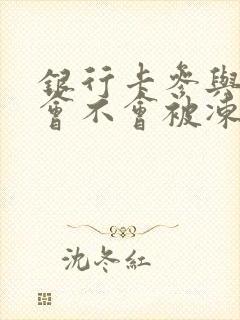 銀行卡參與
會不會被凍
沈冬紅